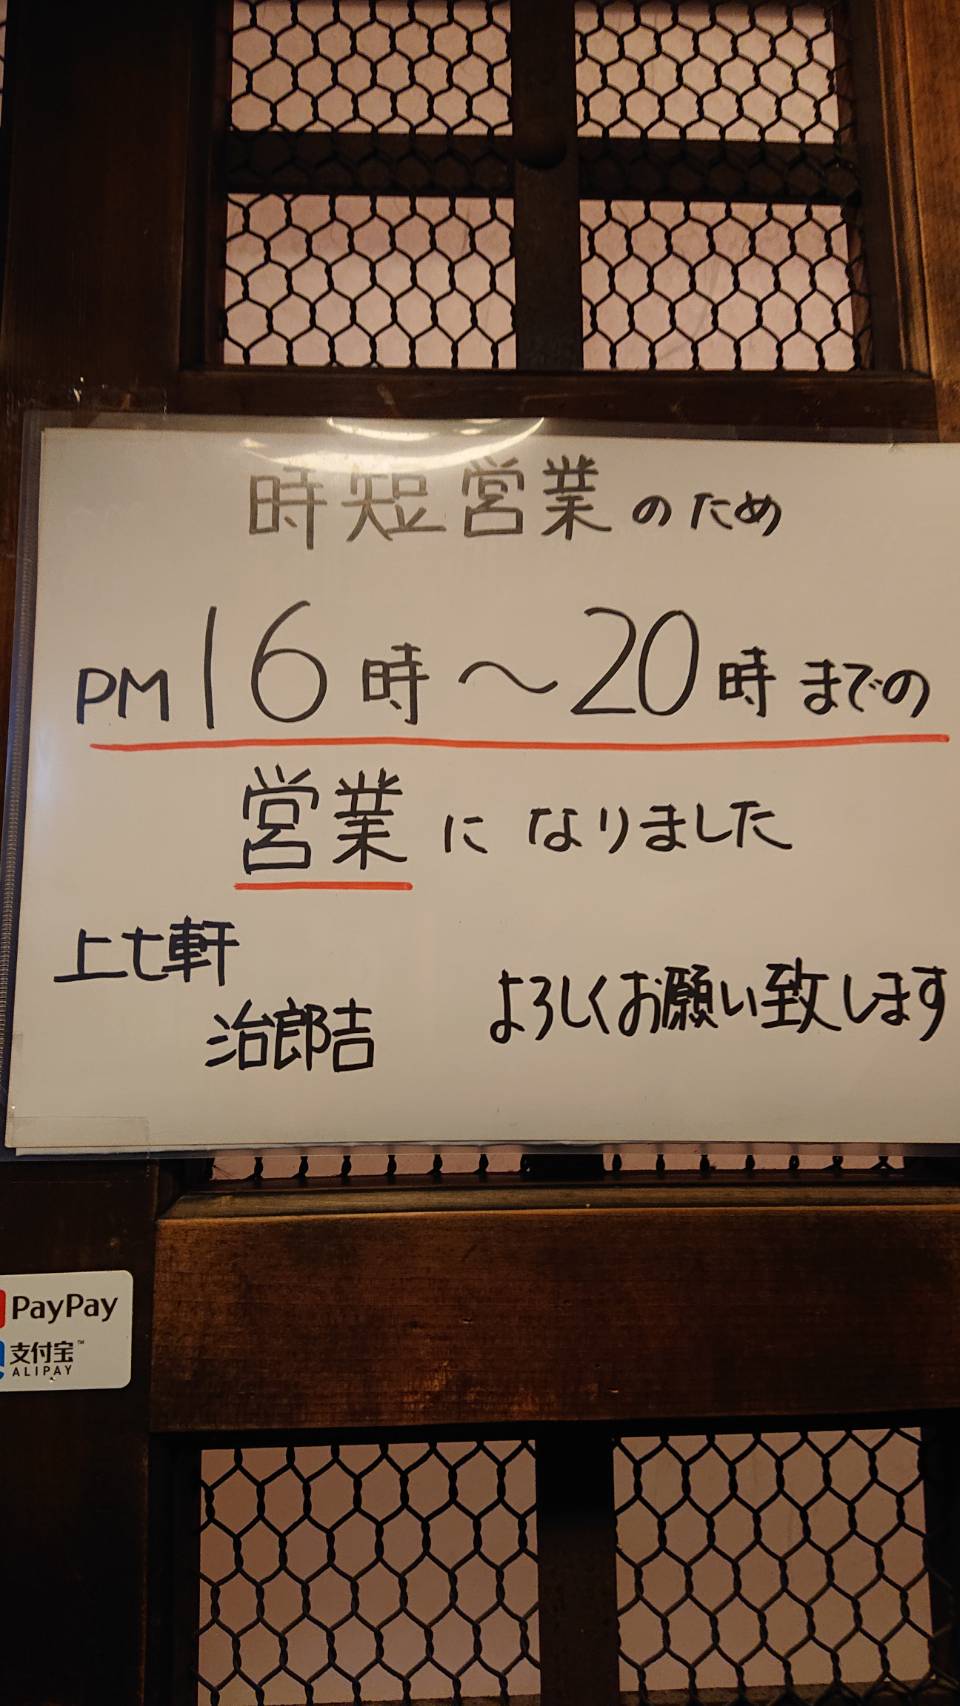 時短営業のため
PM16時～20時までの
営業になりました
上七軒
治郎吉
よろしくお願い致します
PayPay
支付宝™
ALIPAY